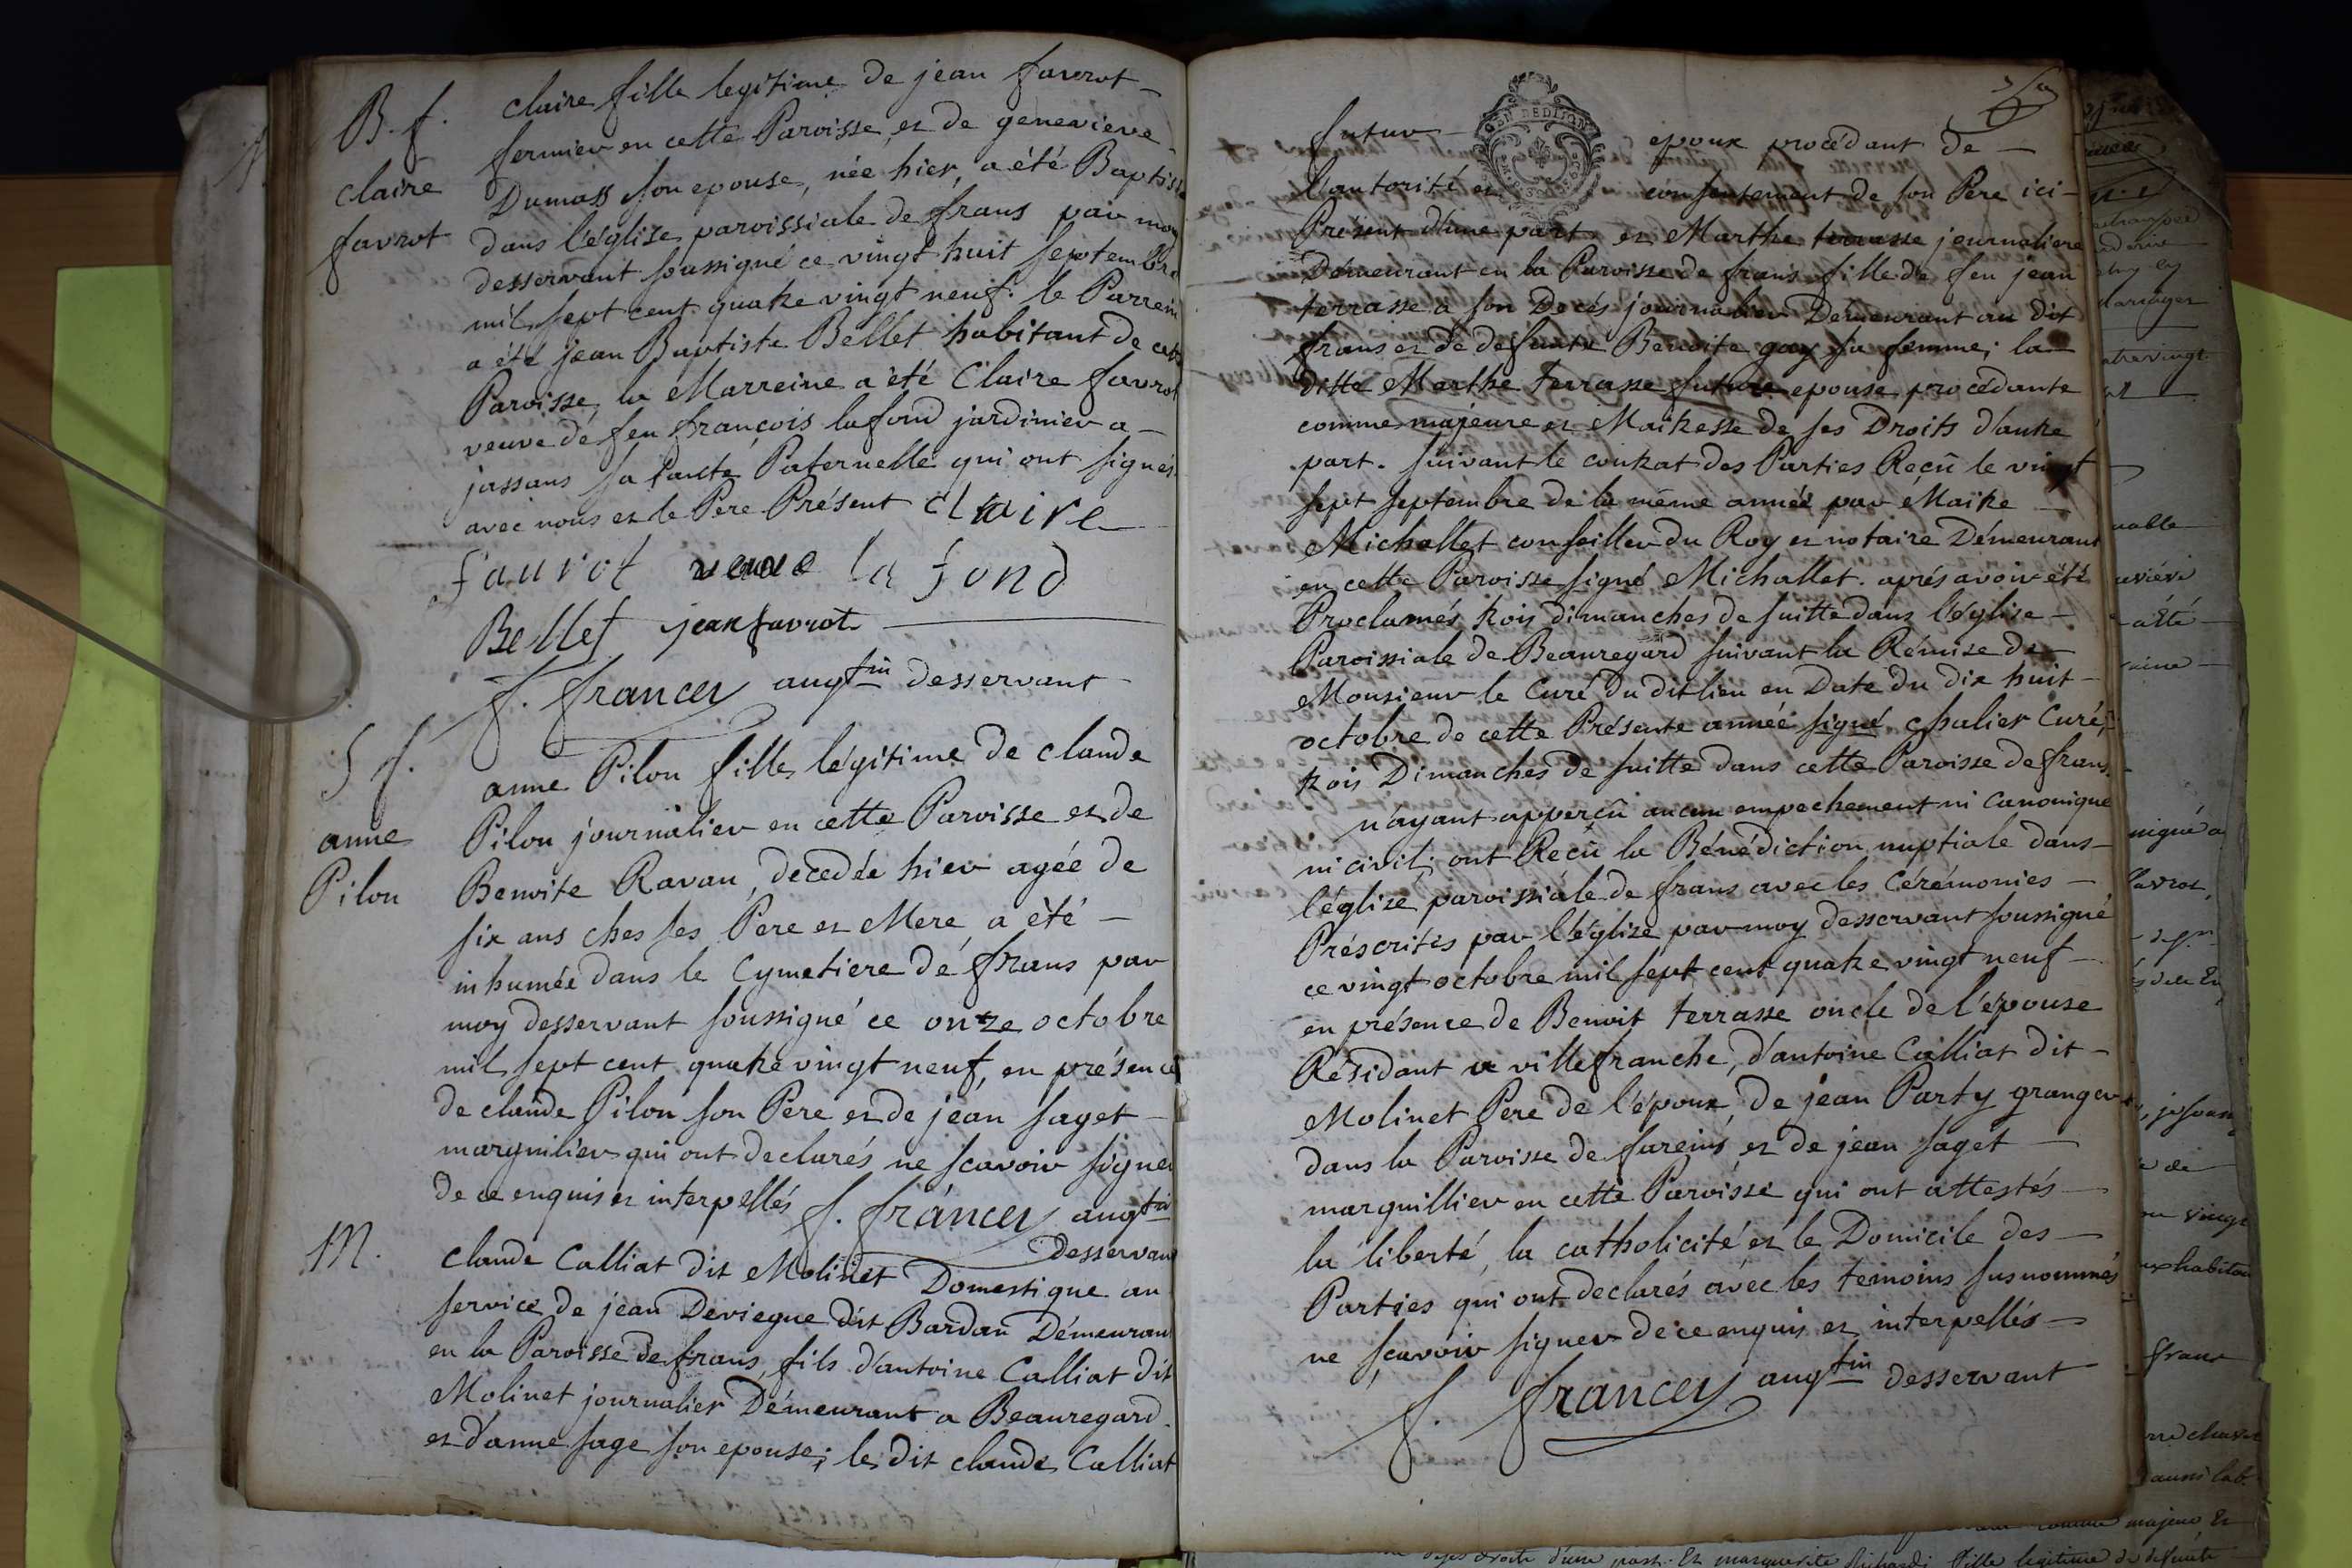 B. f.
claire
favrot
claire fille legitime de jean favrot
fermier en cette Paroisse, et de genevieve
Dumass son epouse, née hier, a été Baptisée
dans l'église paroissiale de frans par moy
desservant soussigné ce vingt huit septembre
mil sept cent quatre vingt neuf. le Parrein
a été jean Baptiste Bellet habitant de cette
Paroisse, la Marreine a été Claire favrot
veuve de feu françois lafond jardinier a
jassans sa tante Paternelle qui ont signés
avec nous et le Pere Présent claire
faurot veuve la fond
Bellet jean favrot
f. francey augtin desservant
S f.
anne
Pilon
anne Pilon fille légitime de claude
Pilon journalier en cette Paroisse et de
Benoite Ravan, decedée hier agée de
six ans ches ses Pere et Mere, a été
inhumée dans le Cymetiere de frans par
moy desservant soussigné ce onze octobre
mil sept cent quatre vingt neuf, en présence
de claude Pilon son Pere et de jean saget
marguilier qui ont declarés ne scavoir signer
de ce enquis et interpellés f. francey augtin
desservant
M.
claude Calliat dit Molinet Domestique au
service de jean Deviegue dit Bardan Démeurant
en la Paroisse de frans, fils d'antoine Calliat dit
Molinet journalier Démeurant a Beauregard
et d'anne sage son epouse; le dit claude Calliat
GEN DE DIJON
futur epoux procédant de
l'autorité et consentement de son Pere ici
Présent d'une part et Marthe terrasse journaliere
Démeurant en la Paroisse de frans fille de feu jean
terrasse a son Decés journalier Démeurant au dit
frans et de defunte Benoite gay sa femme; la
ditte Marthe terrasse future epouse procedante
comme majeure et Maitresse de ses Droits d'autre
part. suivant le contrat des Parties Reçû le vingt
sept septembre de la même année par Maitre
Michallet conseiller du Roy et notaire Démeurant
en cette Paroisse signé Michallet. aprés avoir été
Proclamés trois dimanches de suitte dans l'église
Paroissiale de Beauregard suivant la Rémise de
Monsieur le Curé du dit lieu en Date du dix huit
octobre de cette Présente année signé chalier Curé,
trois Dimanches de suitte dans cette Paroisse de frans
n'ayant apperçû aucun empechement ni Canonique
ni civil; ont Reçû la Bénédiction nuptiale dans
l'église paroissiale de frans avec les Cérémonies
Préscrites par l'église par moy desservant soussigné
ce vingt octobre mil sept cent quatre vingt neuf
en présence de Benoit terrasse oncle de l'épouse
Résidant a villefranche, d'antoine Calliat dit
Molinet Pere de l'époux, de jean Party granger
dans la Paroisse de fareins, et de jean saget
marguillier en cette Paroisse qui ont attestés
la liberté, la catholicité et le Domicile des
Parties qui ont declarés avec les temoins susnommés
ne sçavoir signer de ce enquis et interpellés
f. francey augtin desservant